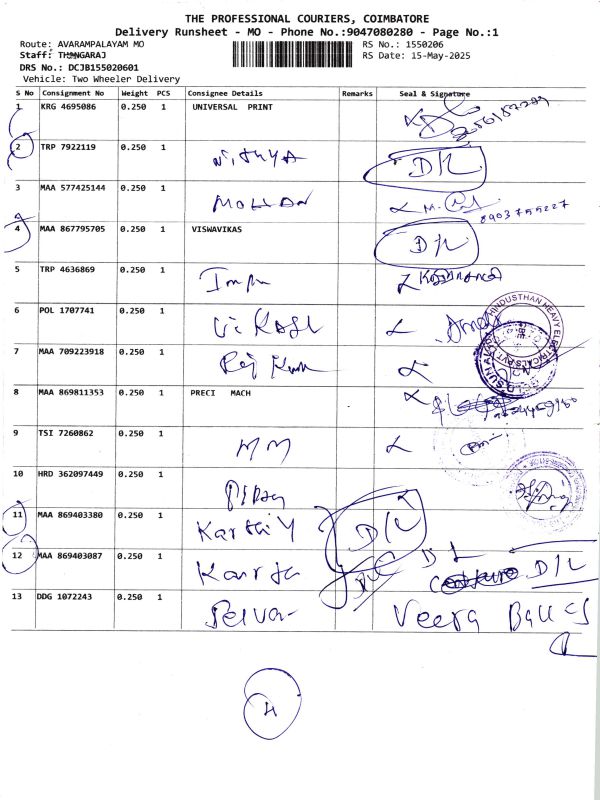 THE PROFESSIONAL COURIERS, COIMBATORE
Delivery Runsheet - MO - Phone No.:9047080280 - Page No.:1
Route: AVARAMPALAYAM MO RS No.: 1550206
Staff: THANGARAJ RS Date: 15-May-2025
DRS No.: DCJB155020601
Vehicle: Two Wheeler Delivery
S No Consignment No Weight PCS Consignee Details Remarks Seal & Signature
1 KRG 4695086 0.250 1 UNIVERSAL PRINT
2 TRP 7922119 0.250 1
Nithya D/L
3 MAA 577425144 0.250 1
MOHAN
8903755227
4 MAA 867795705 0.250 1 VISWAVIKAS
D/L
5 TRP 4636869 0.250 1
6 POL 1707741 0.250 1
Vikash
7 MAA 709223918 0.250 1
Raj Kum
8 MAA 869811353 0.250 1 PRECI MACH
9 TSI 7260862 0.250 1
MM
10 HRD 362097449 0.250 1
11 MAA 869403380 0.250 1
Karthiy D/L
12 MAA 869403087 0.250 1
D L
D/L
13 DDG 1072243 0.250 1
Selva Veera
H